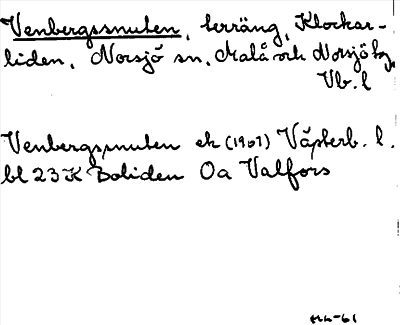 Venbergssnuten, terräng, Klockar-
liden, Norsjö sn, Malå och Norsjö tg,
Vb. l
Venbergsnuten ek (1961) Västerb. l.
bl 23 K Boliden Oa Valfors
HL-61